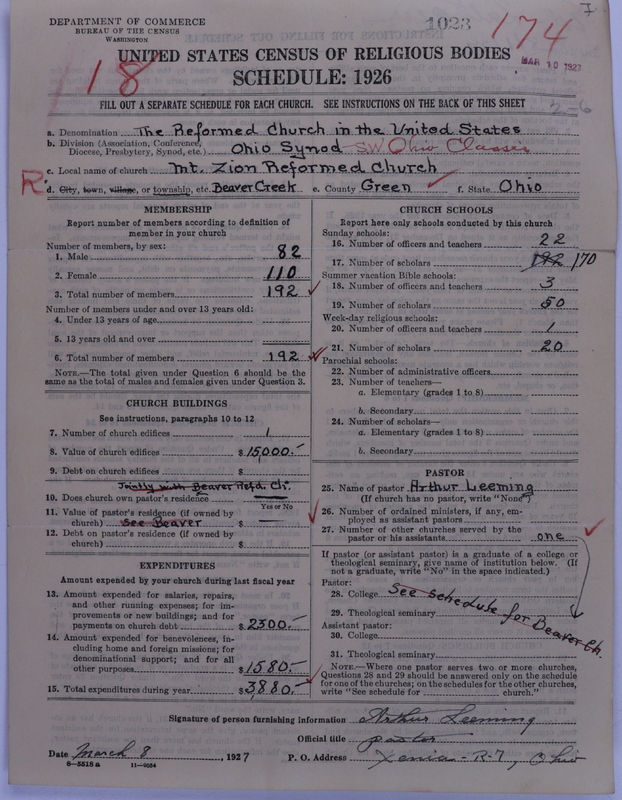 DEPARTMENT OF COMMERCE
BUREAU OF THE CENSUS
WASHINGTON
1028
174
7
MAR 10 1927
UNITED STATES CENSUS OF RELIGIOUS BODIES
18
SCHEDULE: 1926
FILL OUT A SEPARATE SCHEDULE FOR EACH CHURCH. SEE INSTRUCTIONS ON THE BACK OF THIS SHEET
2-6
a. Denomination The Reformed Church in the United States
b. Division (Association, Conference, Diocese, Presbytery, Synod, etc.) Ohio Synod - SW Ohio Classis
c. Local name of church Mt. Zion Reformed Church
R d. City, town, village, or township, etc. Beaver Creek e. County Green f. State Ohio
MEMBERSHIP
Report number of members according to definition of
member in your church
Number of members, by sex:
1. Male 82
2. Female 110
3. Total number of members 192
Number of members under and over 13 years old:
4. Under 13 years of age
5. 13 years old and over
6. Total number of members 192
NOTE.—The total given under Question 6 should be
same as the total of males and females given under Question 3.
CHURCH BUILDINGS
See instructions, paragraphs 10 to 12
7. Number of church edifices 1
8. Value of church edifices $15000.-
9. Debt on church edifices $
Jointly with Beaver Refd. Ch.
10. Does church own pastor's residence
Yes or No
11. Value of pastor's residence (if owned by
church) See Beaver $
12. Debt on pastor's residence (if owned by
church) $
EXPENDITURES
Amount expended by your church during last fiscal year
13. Amount expended for salaries, repairs,
and other running expenses; for im-
provements or new buildings; and for
payments on church debt $2300.-
14. Amount expended for benevolences, in-
cluding home and foreign missions; for
denominational support; and for all
other purposes $1580.-
15. Total expenditures during year $3880.-
CHURCH SCHOOLS
Report here only schools conducted by this church
Sunday schools:
16. Number of officers and teachers 22
17. Number of scholars 192 170
Summer vacation Bible schools:
18. Number of officers and teachers 3
19. Number of scholars 50
Week-day religious schools:
20. Number of officers and teachers 1
21. Number of scholars 20
Parochial schools:
22. Number of administrative officers
23. Number of teachers—
a. Elementary (grades 1 to 8)
b. Secondary
24. Number of scholars—
a. Elementary (grades 1 to 8)
b. Secondary
PASTOR
25. Name of pastor Arthur Leeming
(If church has no pastor, write "None")
26. Number of ordained ministers, if any, em-
ployed as assistant pastors
27. Number of other churches served by the
pastor or his assistants one
If pastor (or assistant pastor) is a graduate of a college or
theological seminary, give name of institution below. (If
not a graduate, write "No" in the space indicated.)
Pastor:
28. College See schedule for Beaver Ch.
29. Theological seminary
Assistant pastor:
30. College
31. Theological seminary
NOTE.—Where one pastor serves two or more churches,
Questions 28 and 29 should be answered only on the schedule
for one of the churches; on the schedules for the other churches,
write "See schedule for church."
Signature of person furnishing information Arthur Leeming
Official title pastor
Date March 8, 1927 P. O. Address Xenia - R-7, Ohio
8-5518a 11-9034